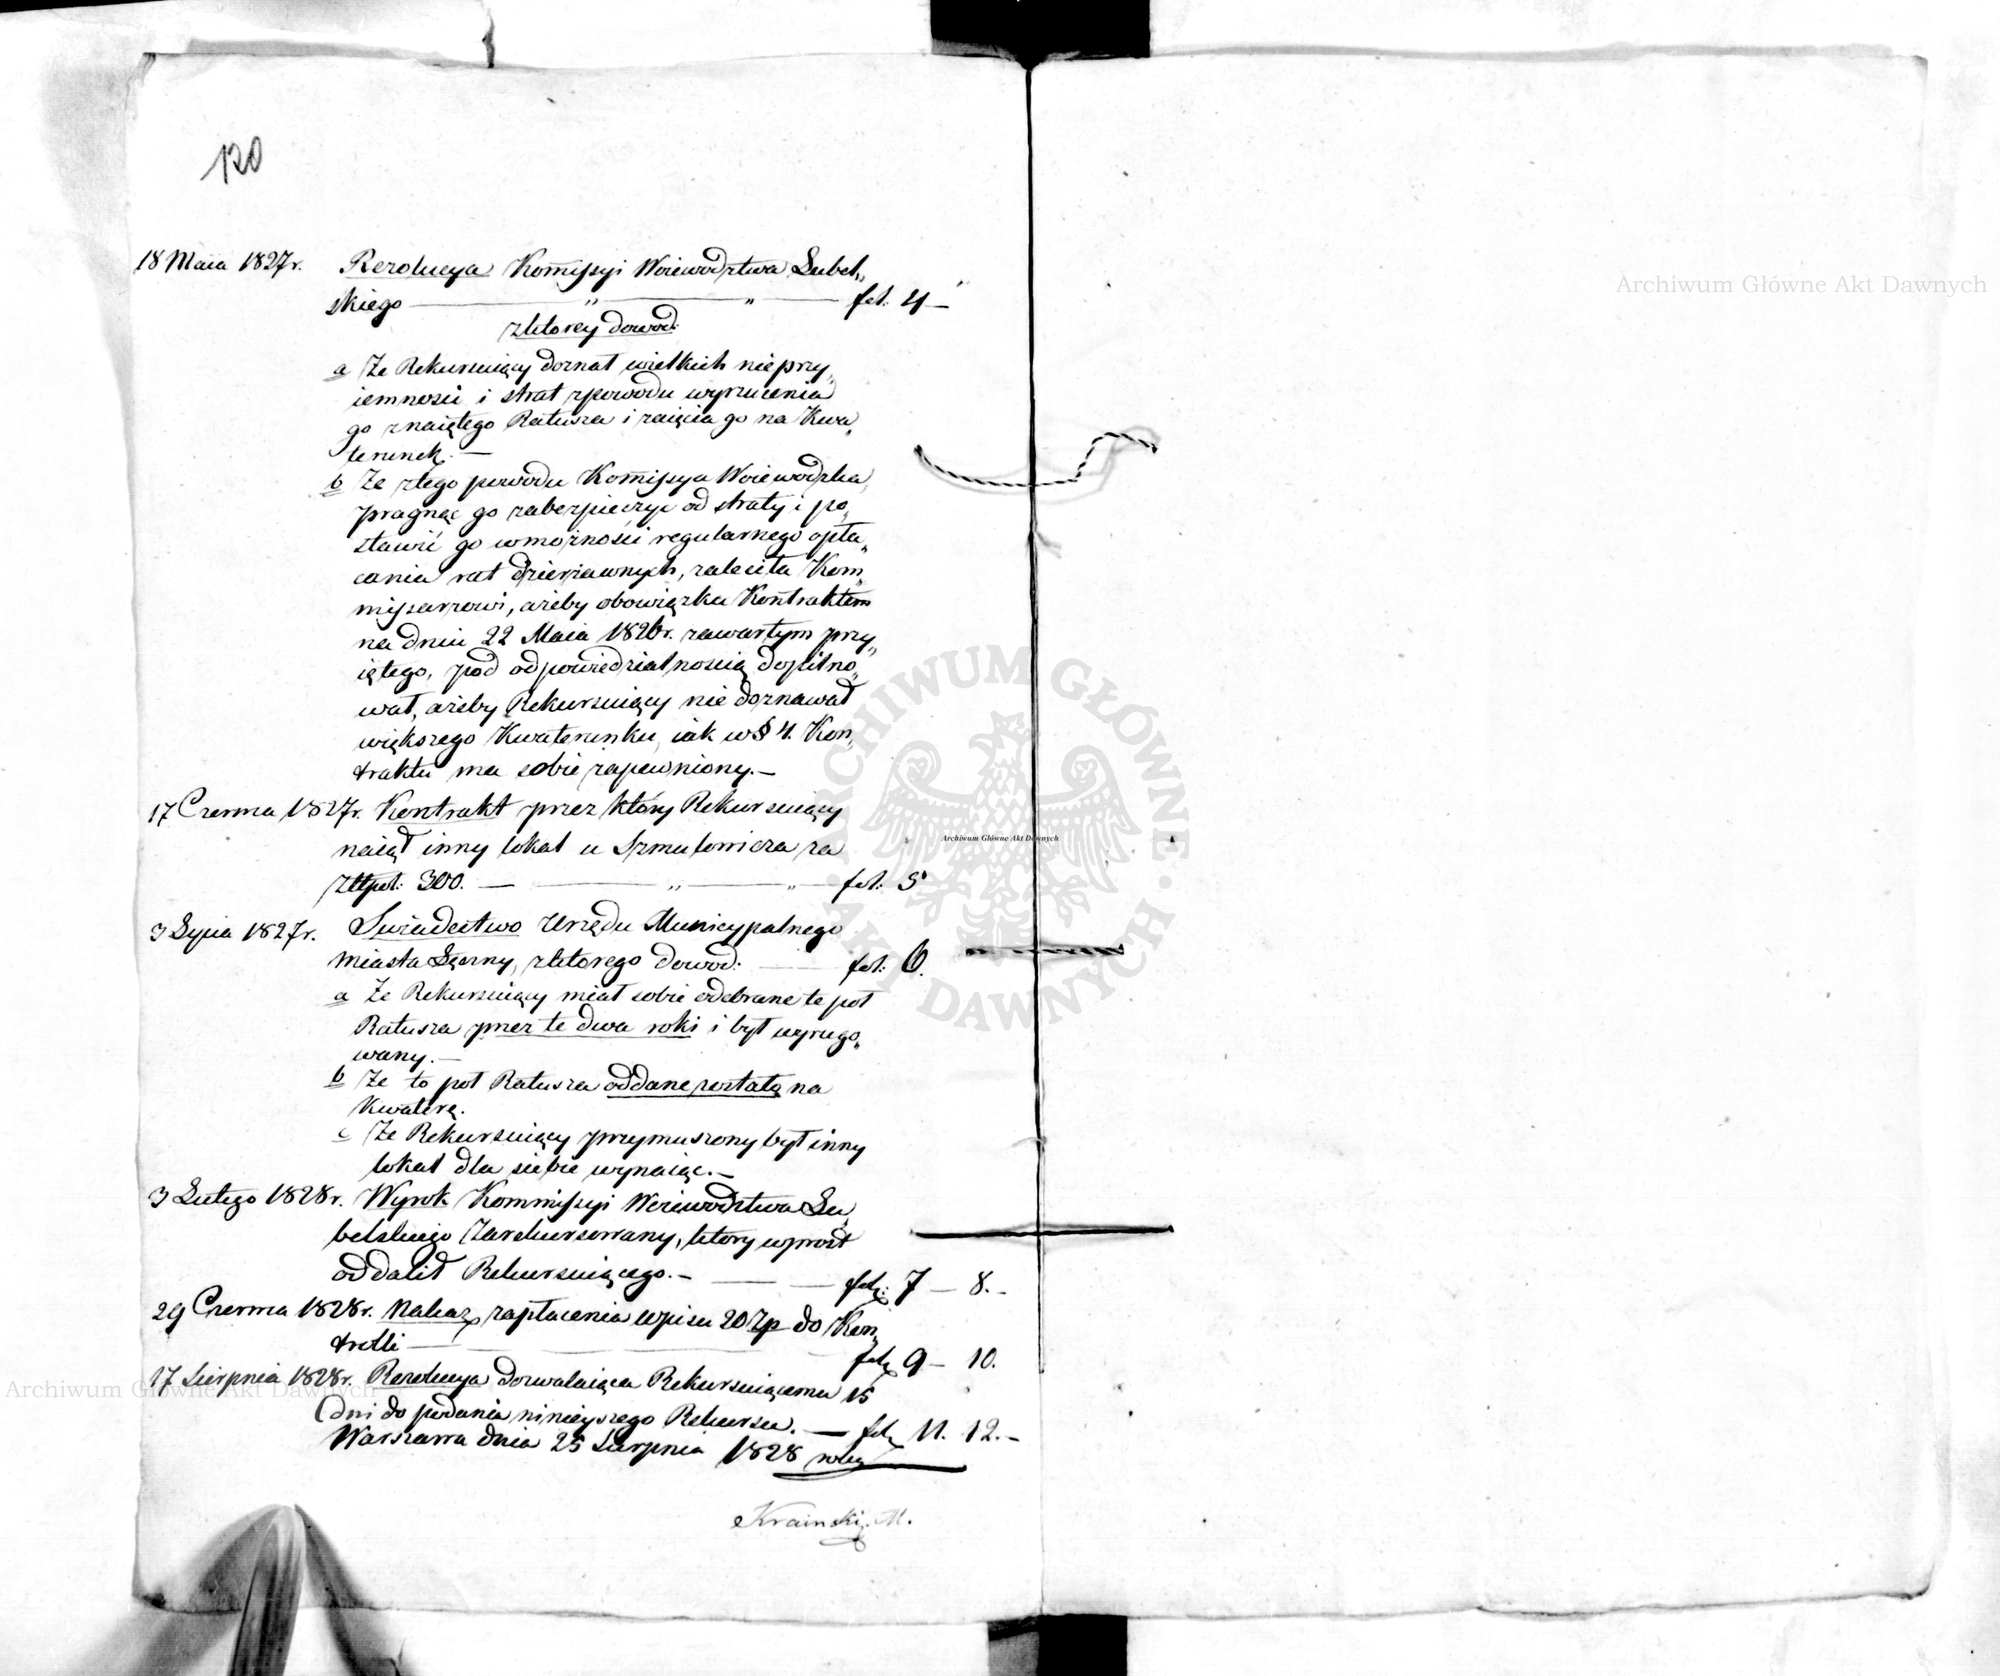 120
18 Maia 1827r. Rezolucya Kommissyi Woiewodztwa Lubel„
skiego — „ — „ — fol: 4 —
z którey dowod:
a Że Rekursuiący doznał wielkich nieprzy„
iemności i strat z powodu wyrzucenia
go z naiętego Ratusza i zaięcia go na Kwa„
terunek. —
b Że z tego powodu Kommissya Woiewodzka,
pragnąc go zabezpieczyc od straty i po„
stawić go w możności regularnego opła„
cania rat dzierżawnych, zaleciła Kom„
missarzowi, ażeby obowiązku Kontraktem
na dniu 22 Maia 1826r. zawartym przy„
iętego, pod odpowiedzialnością dopilno„
wał, ażeby Rekursuiący nie doznawał
większego Kwaterunku, iak w § 4. Kon„
traktu ma sobie zapewniony. —
17 Czerwca 1827r. Kontrakt przez który Rekursuiący
naiął inny lokal u Szmulowicza za
złtpol: 300. — „ — „ — fol: 5
3 Lipca 1827r. Świadectwo Urzędu Municypalnego
miasta Łęczny, z którego dowod: — fol: 6.
a Że Rekursuiący miał sobie odebrane te poł
Ratusza przez te dwa roki i był wyrugo„
wany. —
b Że to poł Ratusza oddane zostało na
Kwaterę.
c Że Rekursuiący przymuszony był inny
lokal dla siebie wynaiąc. —
3 Lutego 1828r. Wyrok Kommissyi Woiewodztwa Lu„
belskiego Zarekursowany, ktory wprost
oddalił Rekursuiącego. — fol: 7 — 8. —
29 Czerwca 1828r. Nakaz zapłacenia wpisu 20 Zp do Kon„
trolli — fol: 9 — 10.
17 Sierpnia 1828r. Rezolucya dozwalaiąca Rekursuiącemu 15
dni do podania ninieyszego Rekursu. — fol: 11. 12. —
Warszawa dnia 25 Sierpnia 1828 roku
Krainski. M.
Archiwum Główne Akt Dawnych
Archiwum Główne Akt Dawnych
Archiwum Główne Akt Dawnych
ARCHIWUM GŁÓWNE · AKT DAWNYCH ·